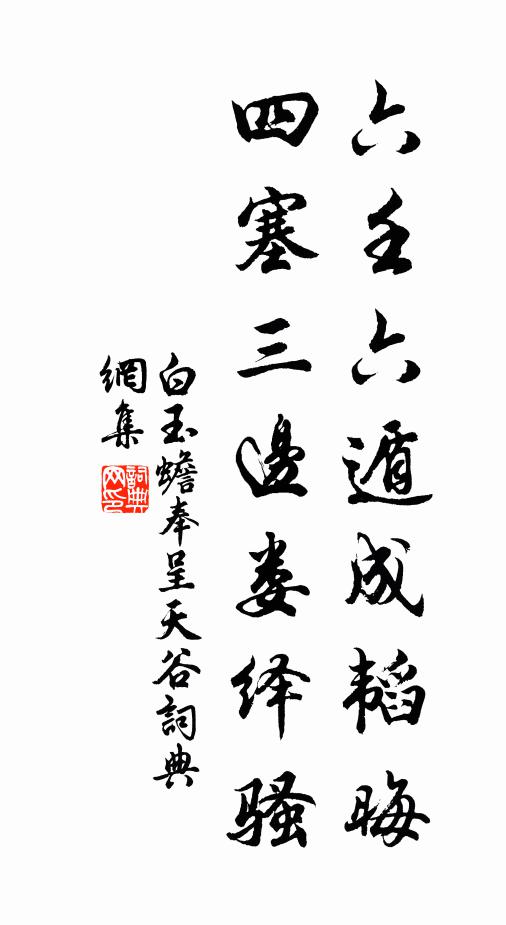 六壬六遁成韬晦
四塞三邊娄绎骚
白玉蟾奉呈天谷詞典
網集
詞典
网印